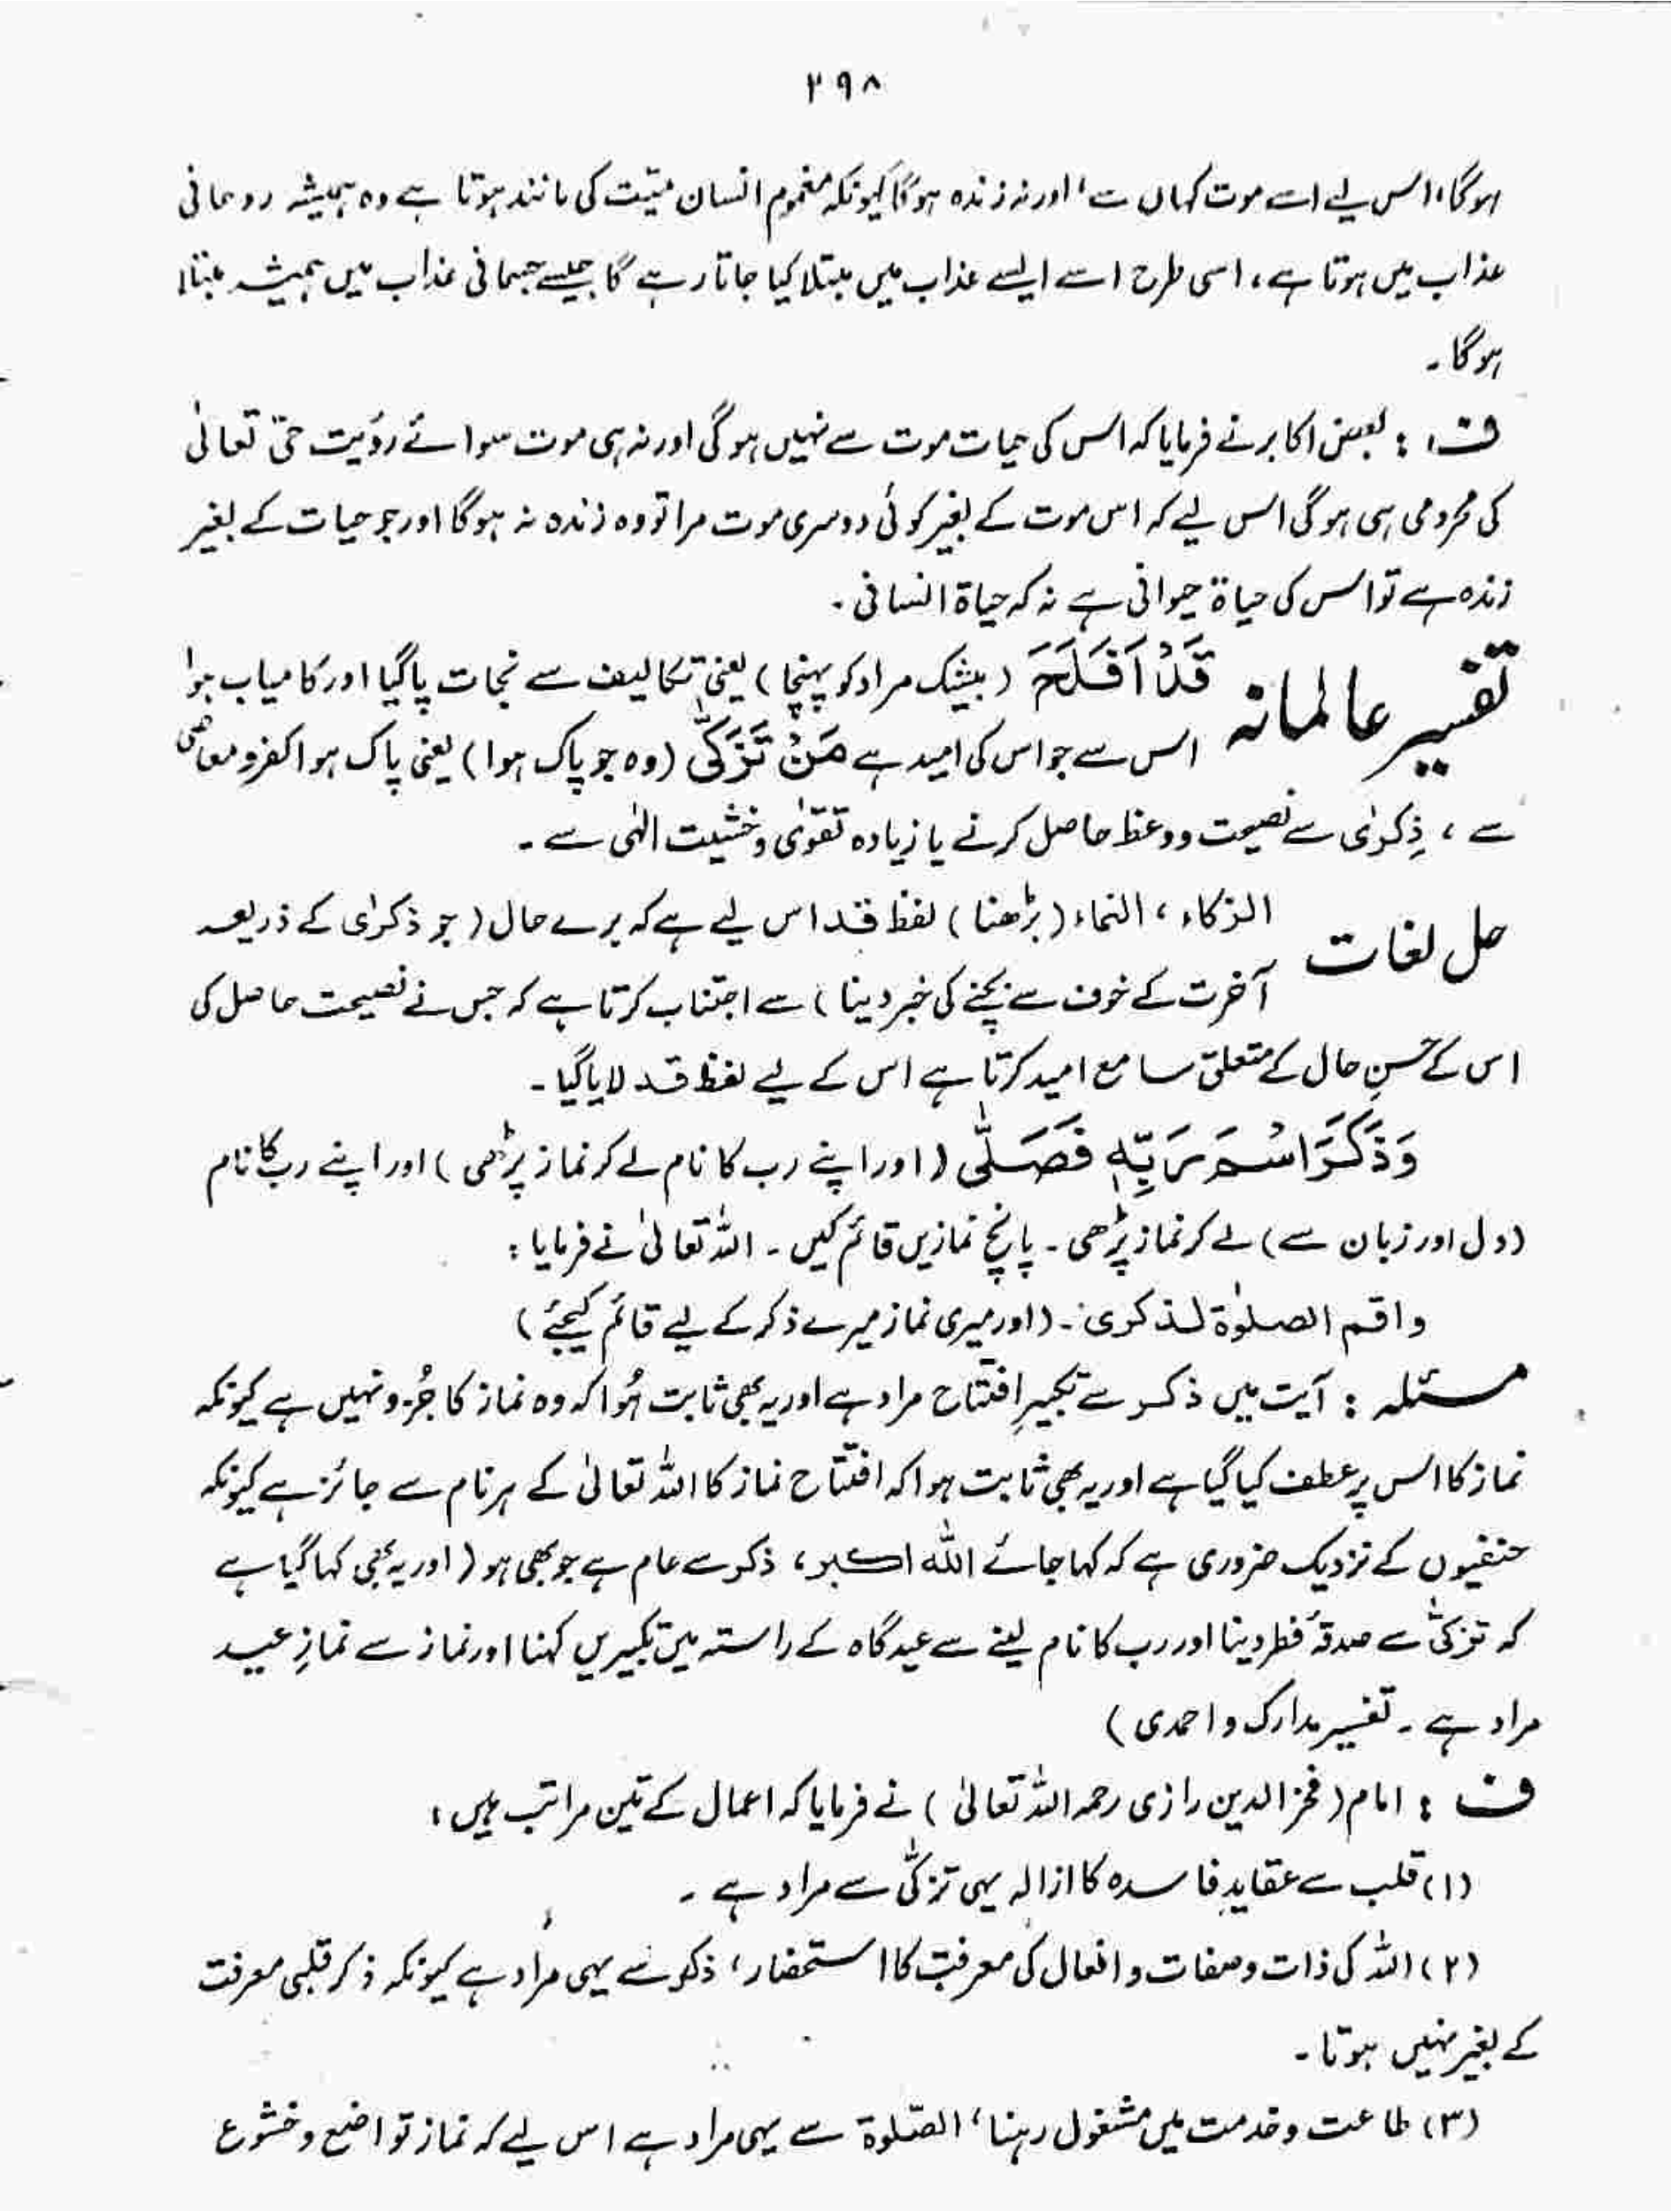 ۳۹۸
ہوگا، اس لیے اسے موت کہاں سے، اور نہ زندہ ہوگا کیونکہ مغموم انسان میّت کی مانند ہوتا ہے وہ ہمیشہ روحانی
عذاب میں ہوتا ہے، اسی طرح اسے ایسے عذاب میں مبتلا کیا جاتا رہے گا جیسے جسمانی عذاب میں ہمیشہ مبتلا
ہوگا۔
ف: بعض اکابر نے فرمایا کہ اس کی حیات موت سے نہیں ہوگی اور نہ ہی موت سوائے رؤیت حق تعالیٰ
کی محرومی ہی ہوگی اس لیے کہ اس موت کے بغیر کوئی دوسری موت مرا تو وہ زندہ نہ ہوگا اور جو حیات کے بغیر
زندہ ہے تو اس کی حیاۃ حیوانی ہے نہ کہ حیاۃ انسانی۔
تفسیر عالمانہ قَدْ اَفْلَحَ (بیشک مراد کو پہنچا) یعنی تکالیف سے نجات پا گیا اور کامیاب ہوا
اس سے جو اس کی امید ہے مَنْ تَزَكّٰى (وہ جو پاک ہوا) یعنی پاک ہوا کفر و معاصی
سے، ذِکرٰی سے نصیحت و وعظ حاصل کرنے یا زیادہ تقویٰ و خشیت الٰہی سے۔
حل لغات الزکاء، النماء (بڑھنا) لفظ قد اس لیے ہے کہ برے حال (جو ذکرٰی کے ذریعہ
آخرت کے خوف سے بچنے کی خبر دینا) سے اجتناب کرتا ہے کہ جس نے نصیحت حاصل کی
اس کے حُسنِ حال کے متعلق سامع امید کرتا ہے اس کے لیے لفظ قد لایا گیا۔
وَذَكَرَ اسْمَ رَبِّهٖ فَصَلّٰى (اور اپنے رب کا نام لے کر نماز پڑھی) اور اپنے رب کا نام
(دل اور زبان سے) لے کر نماز پڑھی۔ پانچ نمازیں قائم کیں۔ اللہ تعالیٰ نے فرمایا:
واقم الصلوٰۃ لذکری۔ (اور میری نماز میرے ذکر کے لیے قائم کیجئے)
مسئلہ: آیت میں ذکر سے تکبیرِ افتتاح مراد ہے اور یہ بھی ثابت ہُوا کہ وہ نماز کا جُزو نہیں ہے کیونکہ
نماز کا اس پر عطف کیا گیا ہے اور یہ بھی ثابت ہوا کہ افتتاح نماز کا اللہ تعالیٰ کے ہر نام سے جائز ہے کیونکہ
حنفیوں کے نزدیک ضروری ہے کہ کہا جائے اللہ اکبر، ذکر سے عام ہے جو بھی ہو (اور یہ بھی کہا گیا ہے
کہ تزکیّٰ سے صدقۂ فطر دینا اور رب کا نام لینے سے عیدگاہ کے راستہ میں تکبیریں کہنا اور نماز سے نمازِ عید
مراد ہے۔ تفسیر مدارک و احمدی)
ف: امام (فخر الدین رازی رحمہ اللہ تعالیٰ) نے فرمایا کہ اعمال کے تین مراتب ہیں:
(۱) قلب سے عقایدِ فاسدہ کا ازالہ یہی تزکّٰی سے مراد ہے۔
(۲) اللہ کی ذات و صفات و افعال کی معرفت کا استحضار، ذکر سے یہی مراد ہے کیونکہ ذکر قلبی معرفت
کے بغیر نہیں ہوتا۔
(۳) طاعت و خدمت میں مشغول رہنا، الصّلوۃ سے یہی مراد ہے اس لیے کہ نماز تواضع و خشوع